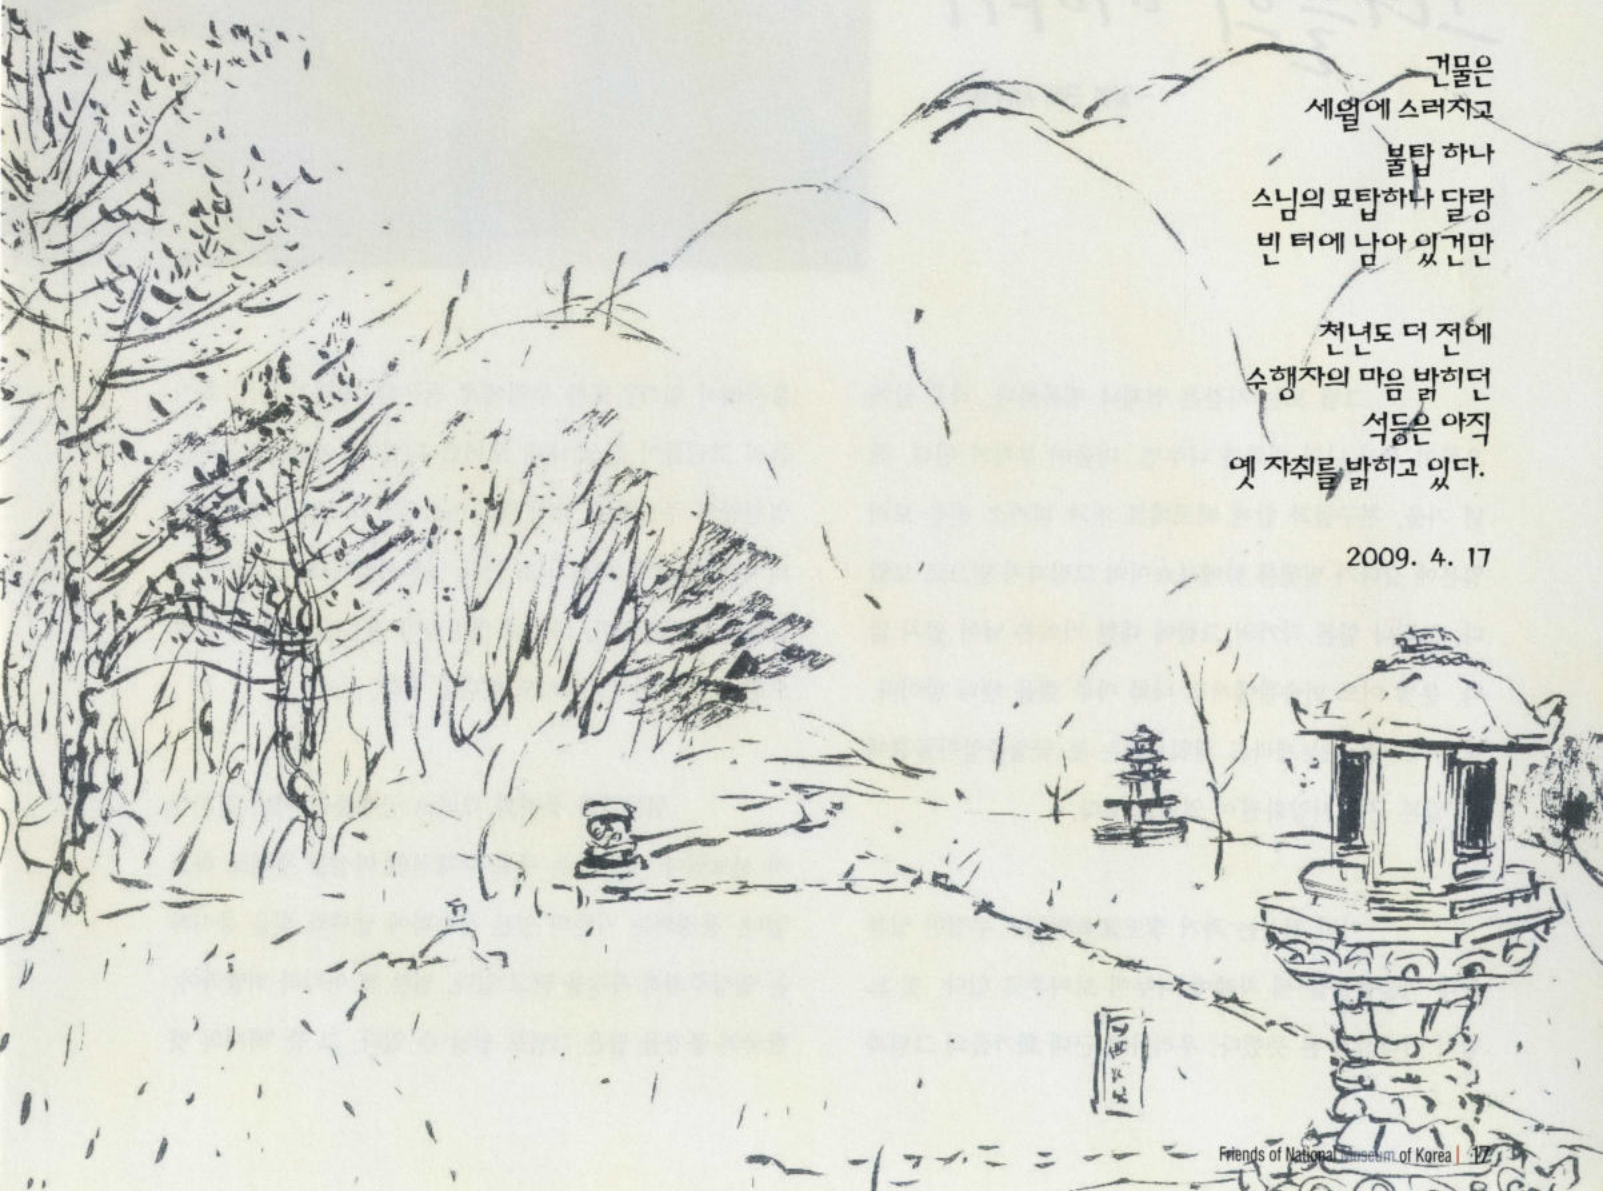 건물은
세월에 스러지고
불탑 하나
스님의 묘탑하나 달랑
빈 터에 남아 있건만
천년도 더 전에
수행자의 마음 밝히던
석등은 아직
옛 자취를 밝히고 있다.
2009. 4. 17
Friends of National Museum of Korea | 17